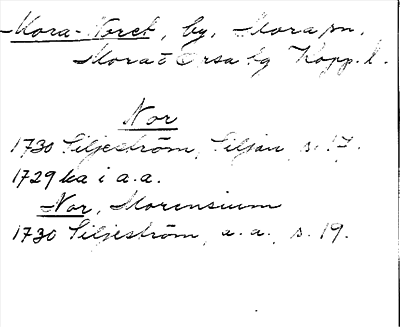 Mora-Noret, by, Mora sn.
Mora o Orsa tg Kopp. l.
Nor
1730 Siljeström, Siljan, s. 17.
1729 ka i a.a.
Nor, Morensium
1730 Siljeström, a.a., s. 19.